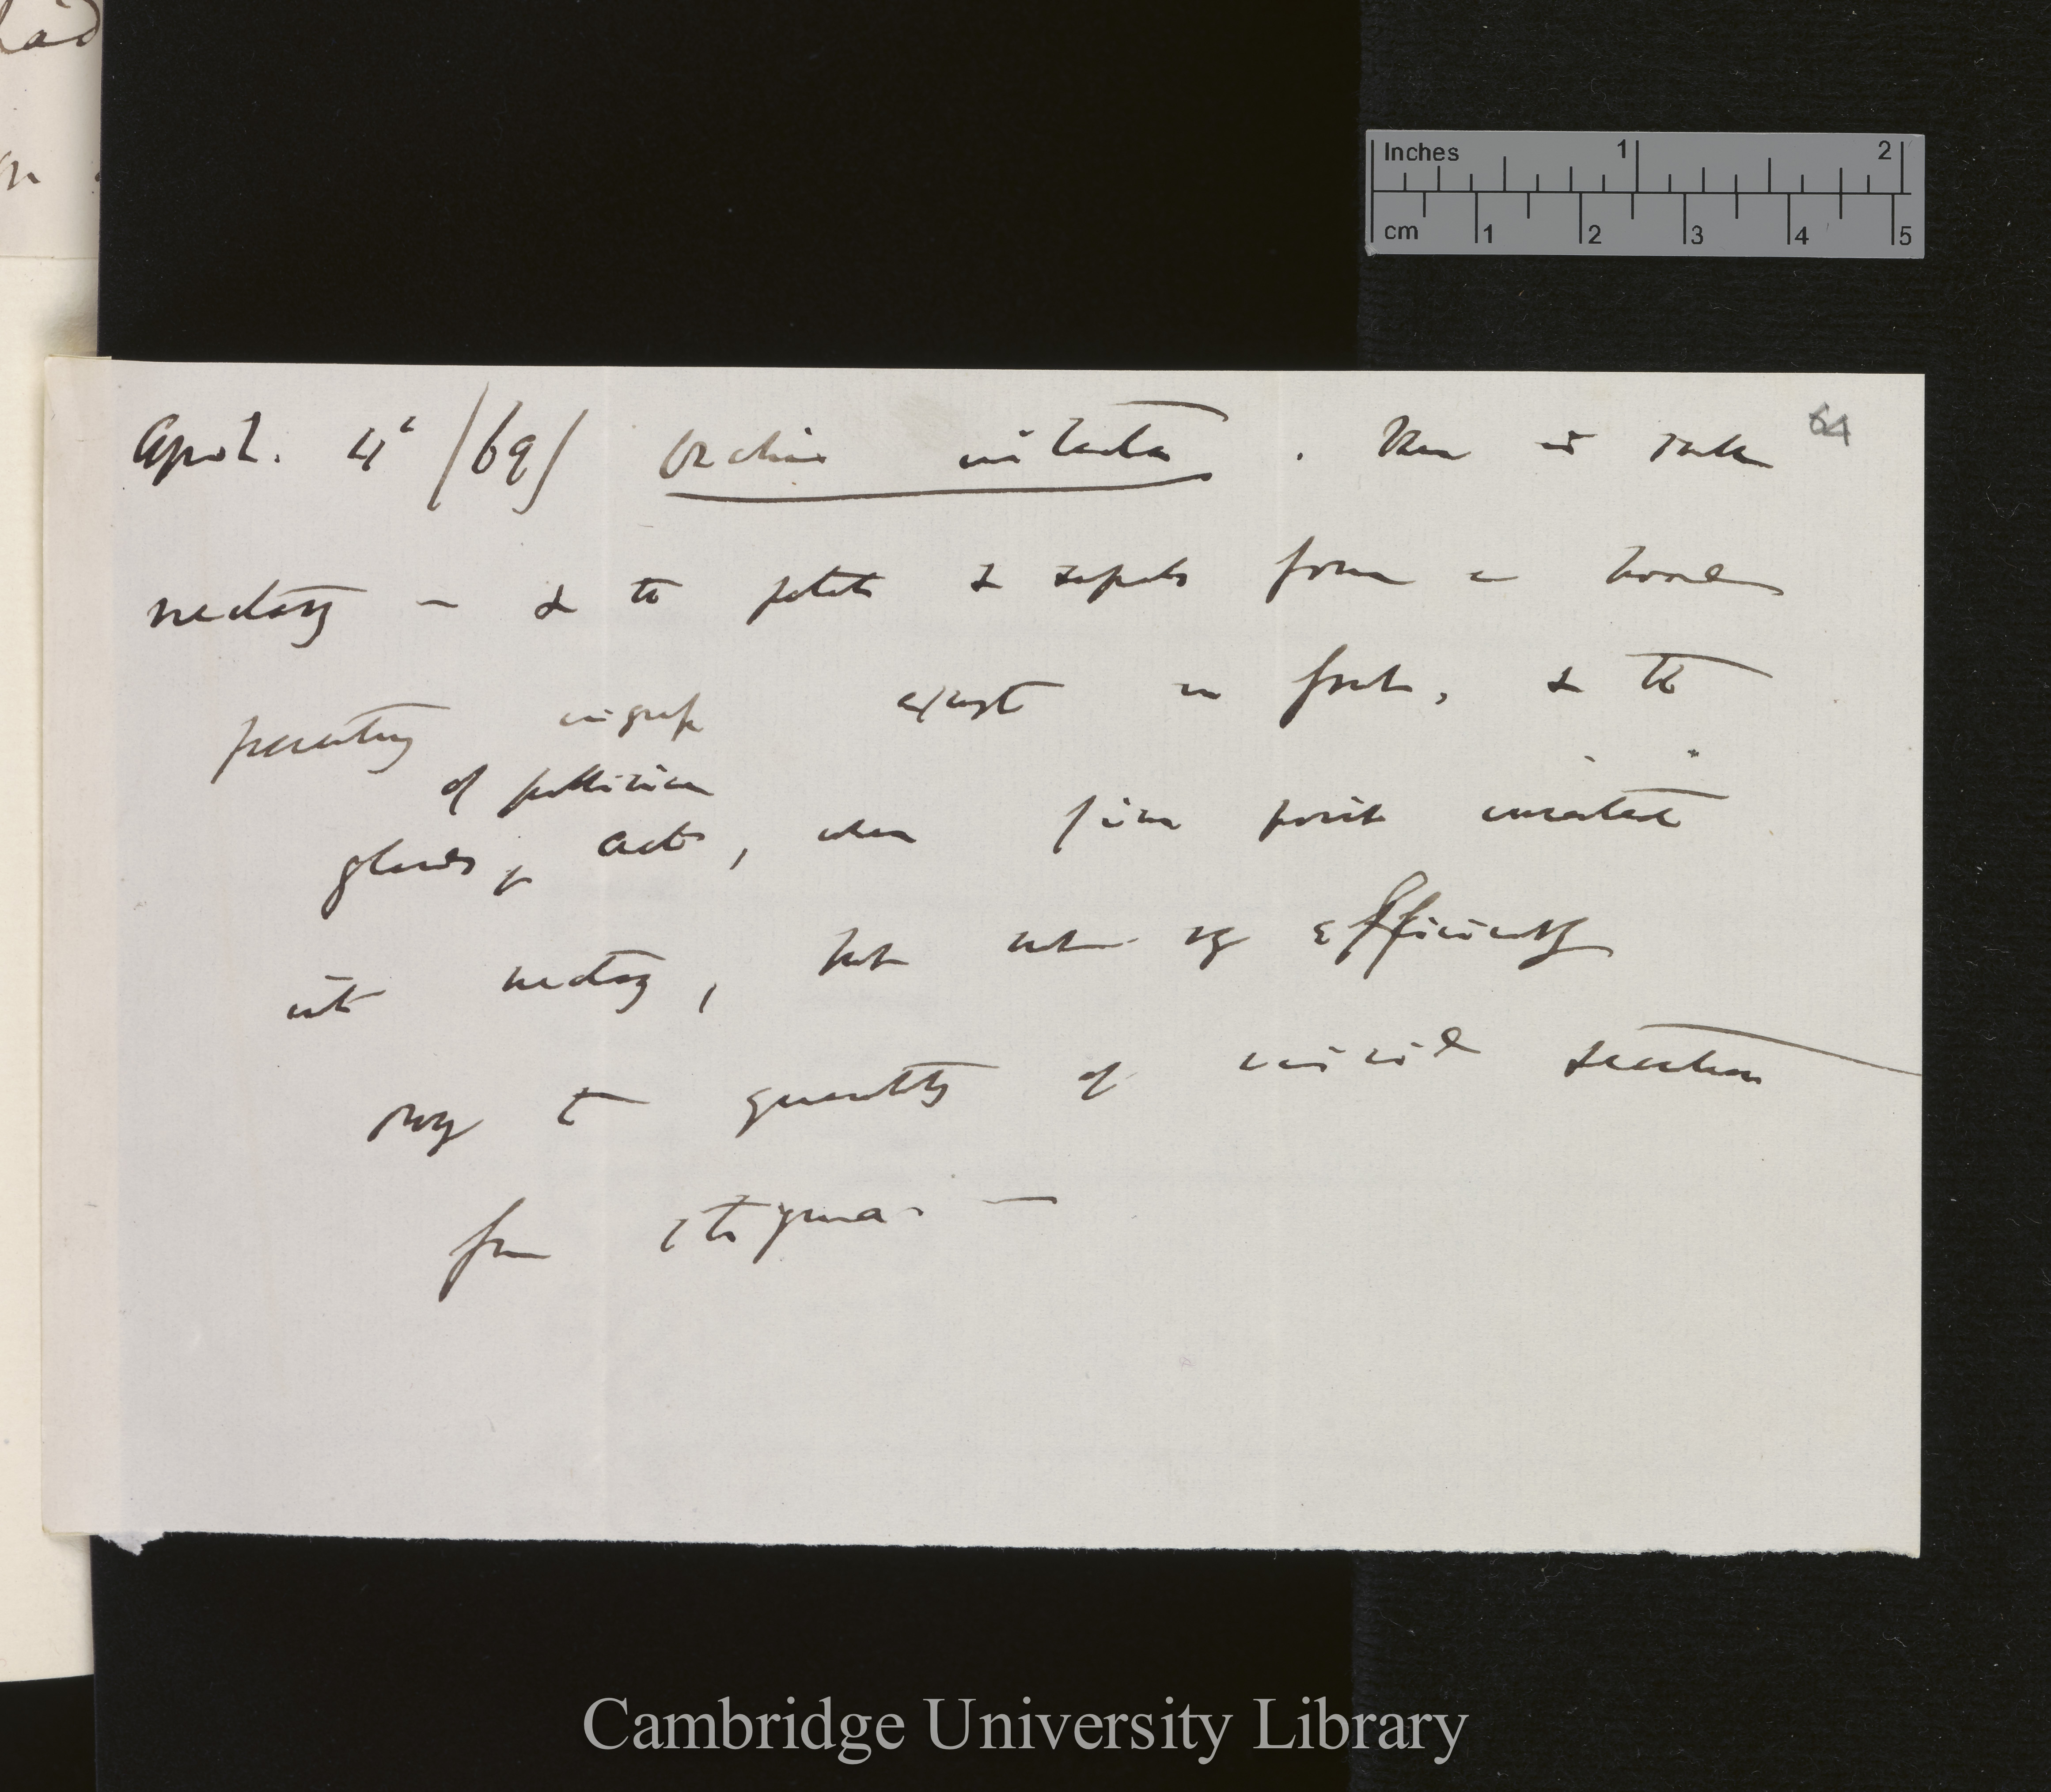 had
Inches 1 2
cm 1 2 3 4 5
64
April. 4' /69/ Orchis intacta. There is
nectary — & the petals & sepals form a hood
preventing ingress except in front, & the
of pollinium
glands, act, when fine point inserted
into nectary, but not very efficiently
owing to quantity of viscid secretion
from stigma. —
Cambridge University Library